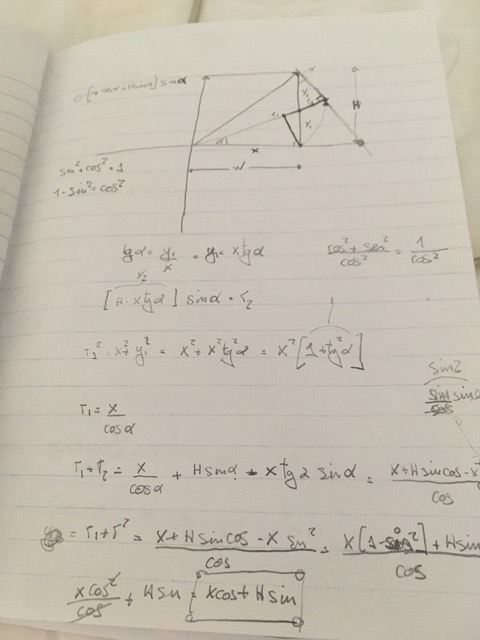 sinα
H
x
W
sen² + cos² = 1
1 - sin² = cos²
tgα = y₁/x = y₁ = x tgα
cos² + sen²/cos² = 1/cos²
y₂
[H - x tgα] sinα = r₂
r₁² = x² + y₁² = x² + x² tg²α = x² [1 + tg²α]
sin²
r₁ = x/cosα
r₁ + r₂ = x/cosα + H sinα - x tgα sinα = x + H sin cos - x
cos
= r₁ + r² = x + H sin cos - x sin²/cos = x[1 - sin²] + H sin
cos
x cos²/cos + H sin = x cos + H sin